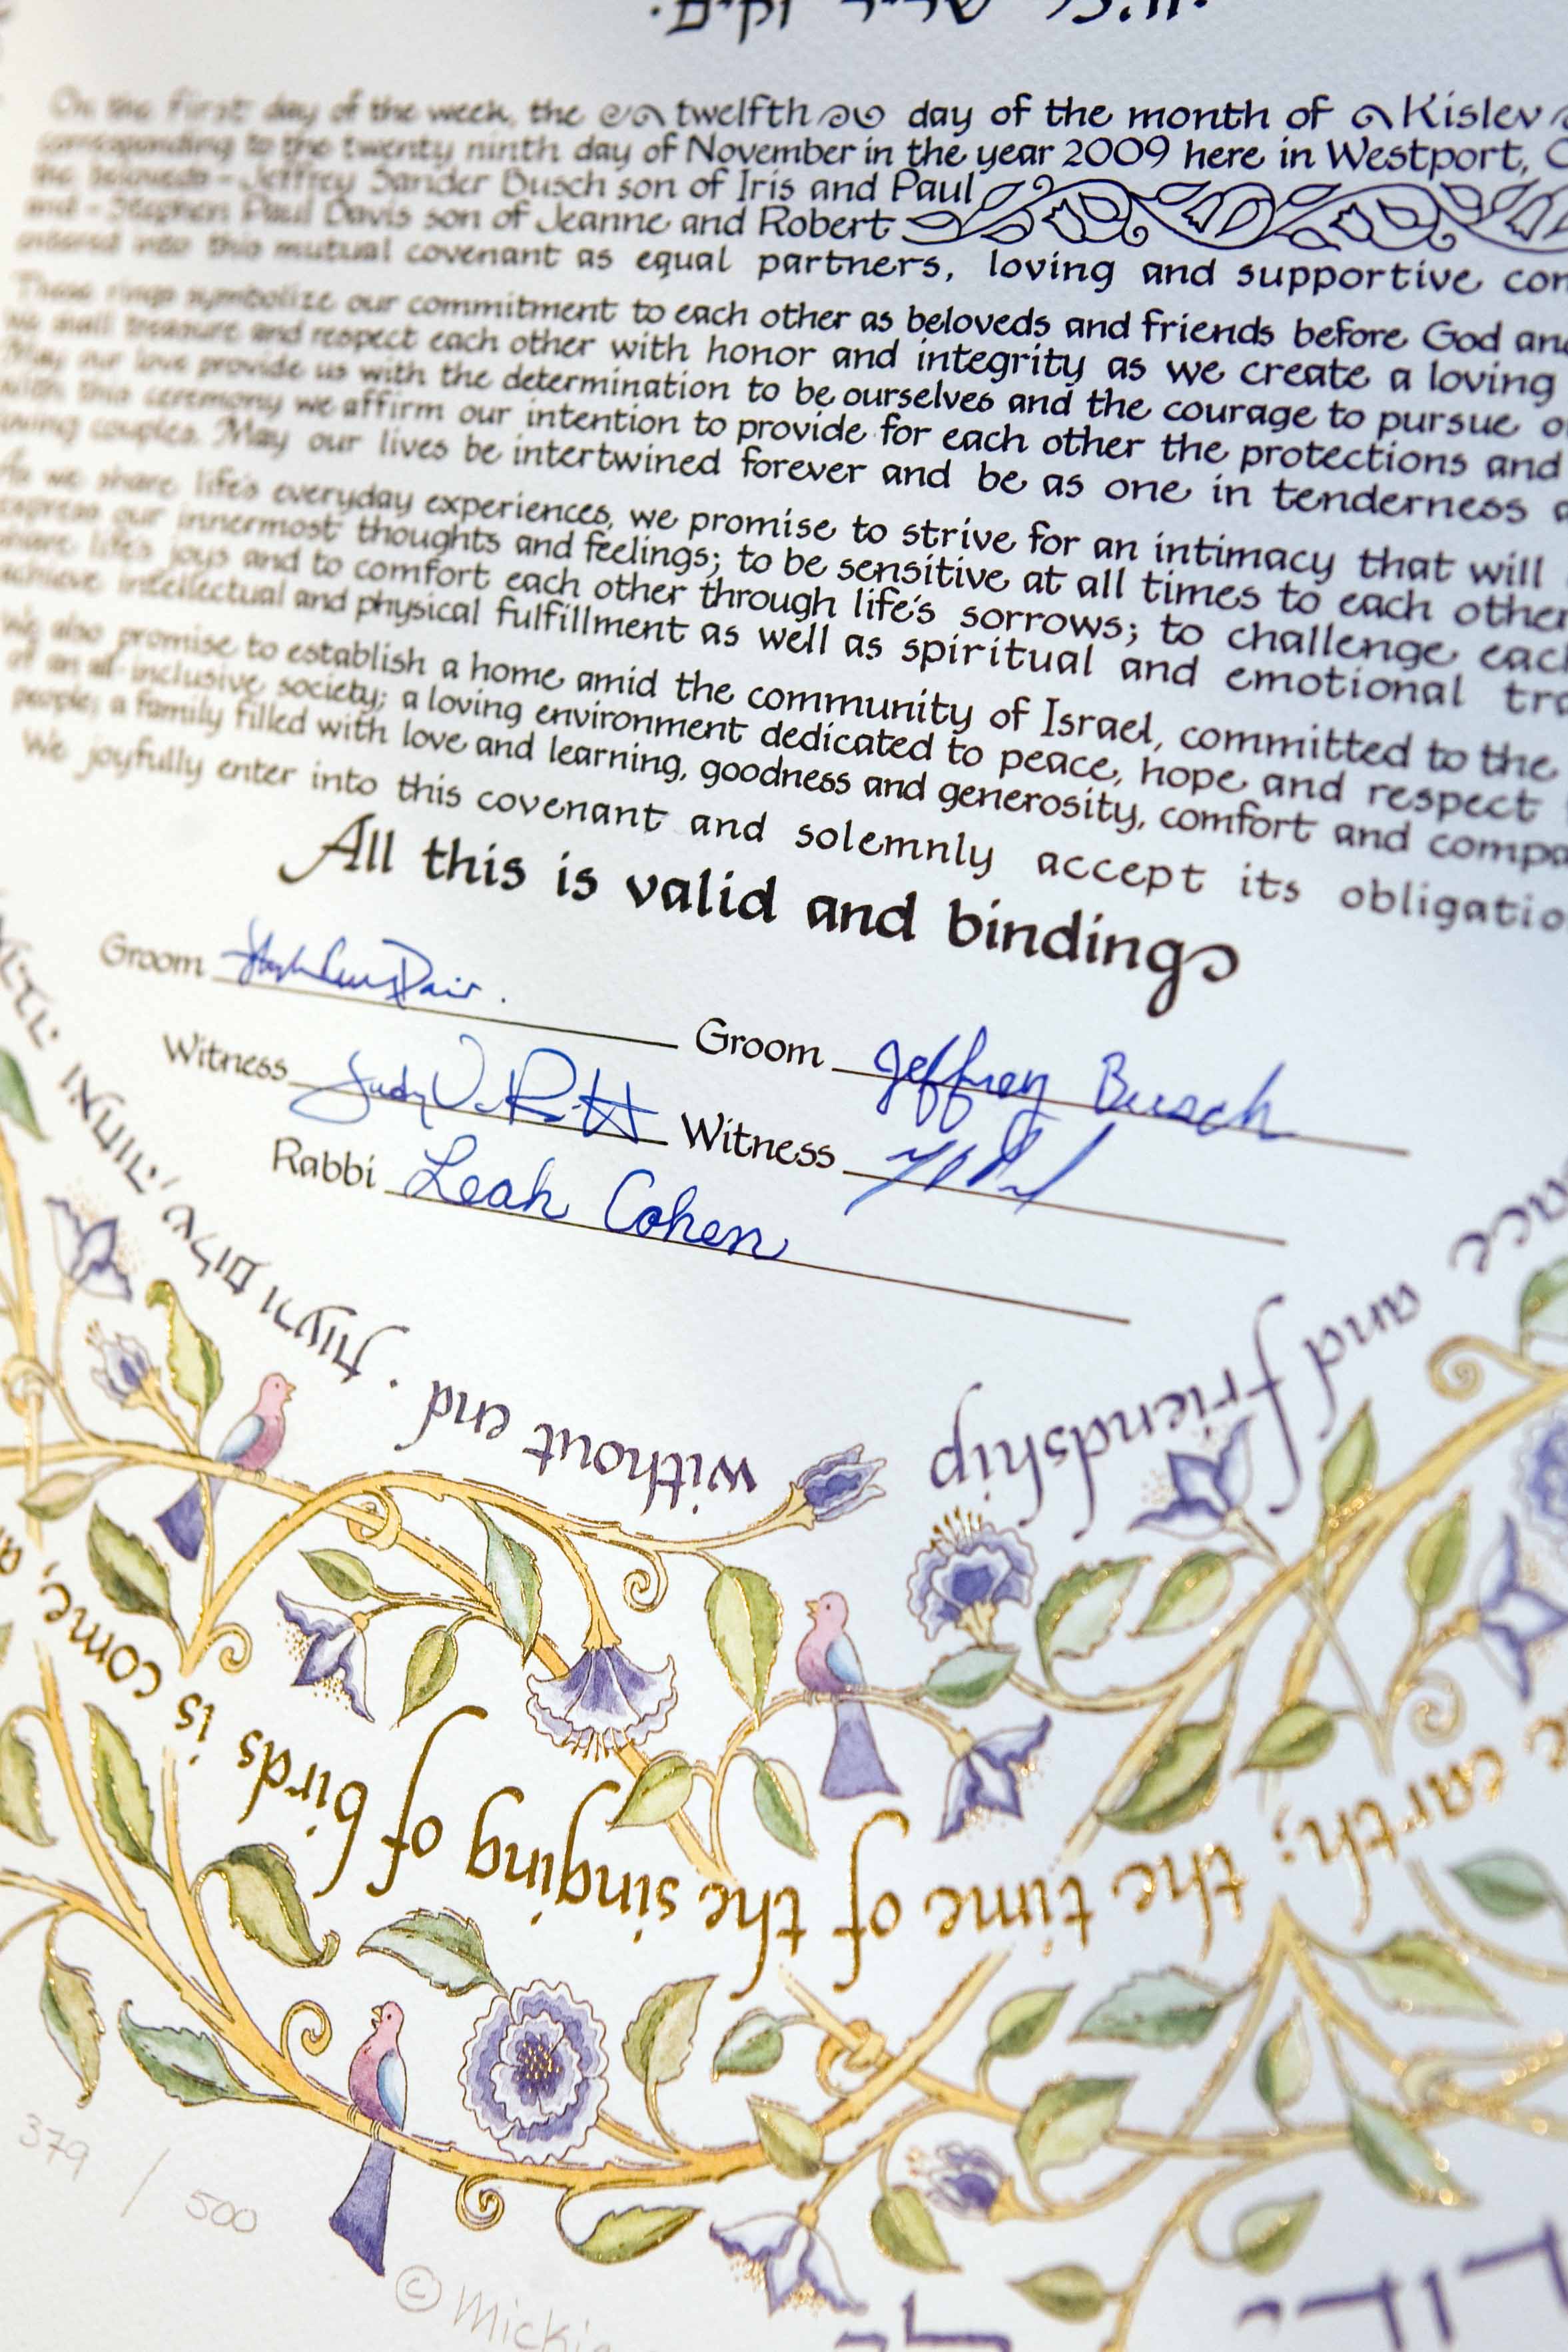 שריר וקים.
On the first day of the week, the twelfth day of the month of Kislev
corresponding to the twenty ninth day of November in the year 2009 here in Westport, C
the beloveds - Jeffrey Sander Busch son of Iris and Paul
and - Stephen Paul Davis son of Jeanne and Robert
entered into this mutual covenant as equal partners, loving and supportive com
These rings symbolize our commitment to each other as beloveds and friends before God and
we shall treasure and respect each other with honor and integrity as we create a loving
May our love provide us with the determination to be ourselves and the courage to pursue o
with this ceremony we affirm our intention to provide for each other the protections and
loving couples. May our lives be intertwined forever and be as one in tenderness a
As we share life's everyday experiences, we promise to strive for an intimacy that will
express our innermost thoughts and feelings; to be sensitive at all times to each other
share life's joys and to comfort each other through life's sorrows; to challenge each
achieve intellectual and physical fulfillment as well as spiritual and emotional tra
We also promise to establish a home amid the community of Israel, committed to the
of an all-inclusive society; a loving environment dedicated to peace, hope and respect
people; a family filled with love and learning, goodness and generosity, comfort and compa
We joyfully enter into this covenant and solemnly accept its obligatio
All this is valid and binding
Groom
Groom Jeffrey Busch
Witness
Witness
Rabbi Leah Cohen
ואחוה, שלום ורעות. without end
and friendship
the earth; the time of the singing of birds is come, a
379 / 500
© Micki